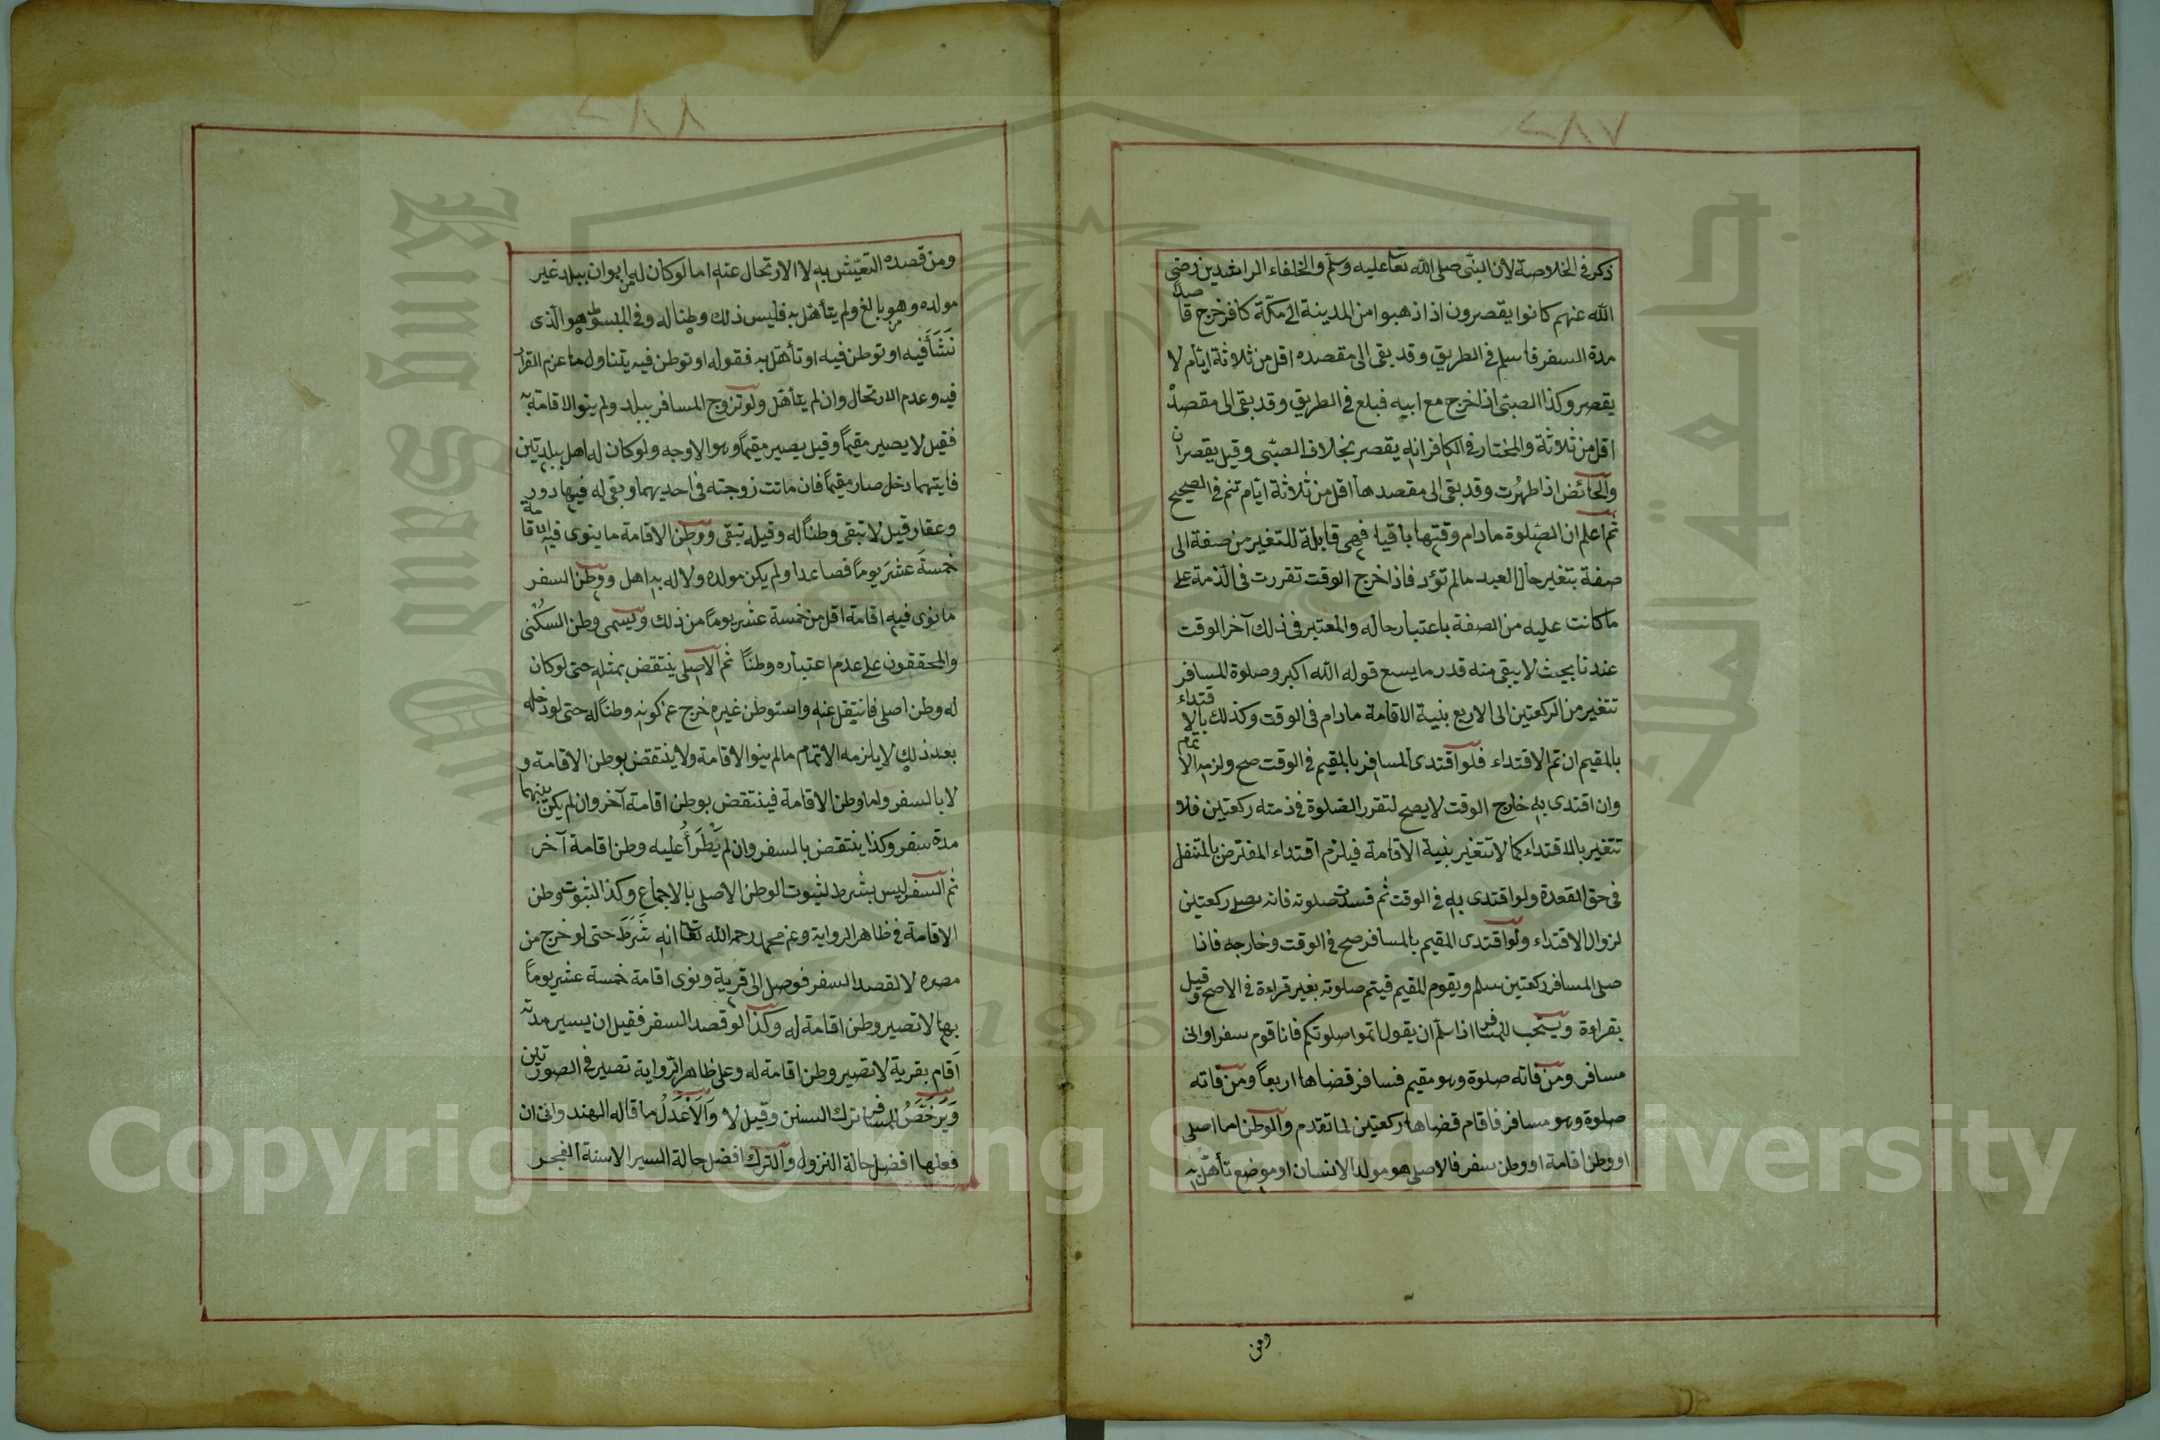 ٢٨٧
ذكر في الخلاصة لأن النبي صلى الله تعا عليه وسلم والخلفاء الراشدين رضي
الله عنهم كانوا يقصرون اذا ذهبوا من المدينة الى مكة كافر خرج قاصدا
مدة السفر فاسلم في الطريق وقد بقى الى مقصده اقل من ثلاثة ايام لا
يقصر وكذا الصبى اذا خرج مع ابيه فبلغ في الطريق وقد بقى الى مقصده
اقل من ثلاثة والمختار في الكافر انه يقصر بخلاف الصبى وقيل يقصران
والحائض اذا طهرت وقد بقى الى مقصدها اقل من ثلاثة ايام تتم في الصحيح
ثم اعلم ان الصلوة مادام وقتها باقيا فهى قابلة للتغير من صفة الى
صفة بتغير حال العبد مالم تؤد فاذا خرج الوقت تقررت فى الذمة على
ما كانت عليه من الصفة باعتبار حاله والمعتبر فى ذلك آخر الوقت
عندنا بحيث لا يبقى منه قدر ما يسع قوله الله اكبر وصلوة المسافر
تتغير من الركعتين الى الاربع بنية الاقامة مادام فى الوقت وكذلك بالاقتداء
بالمقيم ان تم الاقتداء فلو اقتدى المسافر بالمقيم فى الوقت صح ولزمه الاتمام
وان اقتدى به خارج الوقت لا يصح لتقرر الصلوة فى ذمته ركعتين فلا
تتغير بالاقتداء كما لا تتغير بنية الاقامة فيلزم اقتداء المفترض بالمتنفل
فى حق القعدة ولو اقتدى به فى الوقت ثم فسدت صلوته فانه يصلى ركعتين
لزوال الاقتداء ولو اقتدى المقيم بالمسافر صح فى الوقت وخارجه فاذا
صلى المسافر ركعتين سلم ويقوم المقيم فيتم صلوته بغير قراءة فى الاصح وقيل
بقراءة ويستحب للمسافر اذا سلم ان يقول اتموا صلوتكم فانا قوم سفر او انى
مسافر ومن فاته صلوة وهو مقيم فسافر قضاها اربعاً ومن فاته
صلوة وهو مسافر فاقام قضاها ركعتين لما تقدم والوطن اما اصلى
او وطن اقامة او وطن سفر فالاصلى هو مولد الانسان او موضع تأهل به
ومن
٢٨٨
ومن قصده التعيش به لا الارتحال عنه اما لو كان له ابوان ببلد غير
مولده وهو بالغ ولم يتأهل به فليس ذلك وطنا له وفى المبسوط هو الذى
نشأ فيه او توطن فيه او تأهل به فقوله او توطن فيه يتناول ما عزم القرار
فيه وعدم الارتحال وان لم يتأهل ولو تزوج المسافر ببلد ولم ينو الاقامة به
فقيل لا يصير مقيماً وقيل يصير مقيماً وهو الاوجه ولو كان له اهل ببلدتين
فايتهما دخل صار مقيماً فان ماتت زوجته فى احديهما وبقى له فيها دور
وعقار قيل لا تبقى وطناً له وقيل تبقى ووطن الاقامة ما ينوى فيه الاقامة
خمسة عشر يوماً فصاعدا ولم يكن مولده ولا له به اهل ووطن السفر
ما نوى فيه اقامة اقل من خمسة عشر يوماً من ذلك ويسمى وطن السكنى
والمحققون على عدم اعتباره وطناً ثم الاصلى ينتقض بمثله حتى لو كان
له وطن اصلى فانتقل عنه واستوطن غيره خرج عن كونه وطناً له حتى لو دخله
بعد ذلك لا يلزمه الاتمام مالم ينو الاقامة ولا ينتقض بوطن الاقامة و
لا بالسفر واما وطن الاقامة فينتقض بوطن اقامة آخر وان لم يكن بينهما
مدة سفر وكذا ينتقض بالسفر وان لم يَطْرَأْ عليه وطن اقامة آخر
ثم السفر ليس بشرط لثبوت الوطن الاصلى بالاجماع وكذا لثبوت وطن
الاقامة فى ظاهر الرواية وعن محمد رحمه الله تعا انه شرط حتى لو خرج من
مصره لا لقصد السفر فوصل الى قرية ونوى اقامة خمسة عشر يوماً
بها لا تصير وطن اقامة له وكذا لو قصد السفر فقبل ان يسير مدته
اقام بقرية لا تصير وطن اقامة له وعلى ظاهر الرواية تصير فى الصورتين
ويرخص للمسافر ترك السنن وقيل لا والاعدل ما قاله الهندوانى ان
فعلها افضل حالة النزول والترك افضل حالة السير الا سنة الفجر